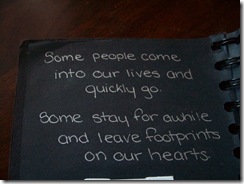 Some people come
into our lives and
quickly go.
Some stay for awhile
and leave footprints
on our hearts.